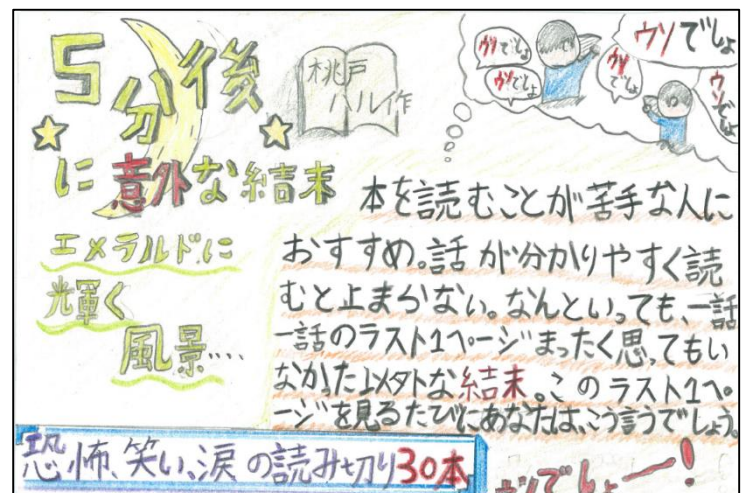 5分後
に意外な結末
桃戸
ハル作
ウソでしょ
ウソでしょ
ウソでしょ
ウソでしょ
ウソでしょ
エメラルドに
光軍く
風景…
本を読むことが苦手な人に
おすすめ。話が分かりやすく読
むと止まらない。なんといっても、一話
一話のラスト1ページまったく思ってもい
なかった以外な結末。このラスト1ペ
ージを見るたびにあなたは、こう言うでしょう。
恐怖、笑い、涙の読み切り30本
ウソでしょー!